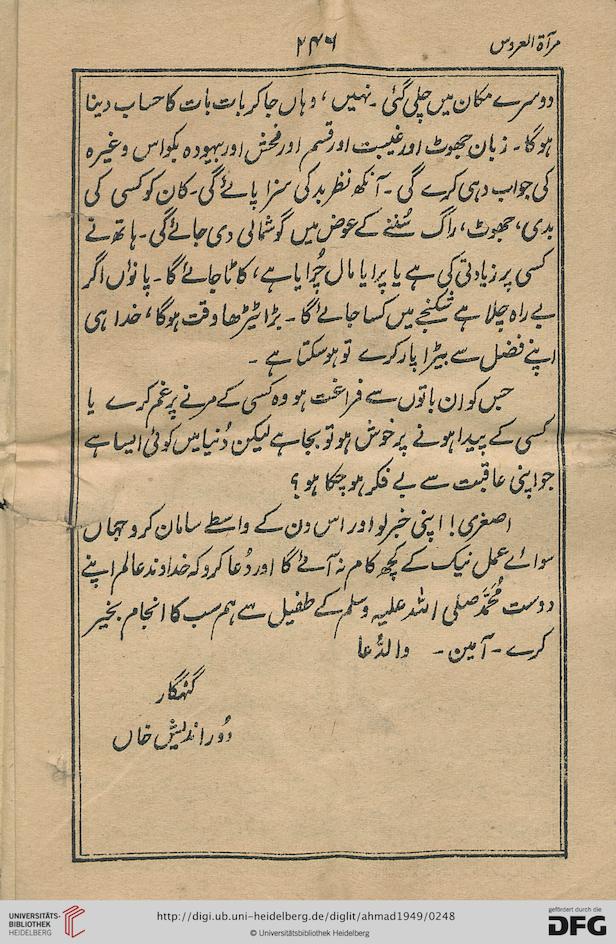 مرآة العروس
۲۴۶
دوسرے مکان میں چلی گئی ۔ نہیں ، وہاں جا کر بات بات کا حساب دینا
ہوگا ۔ زبان جھوٹ اور غیبت اور قسم اور فحش اور بیہودہ بکواس وغیرہ
کی جواب دہی کرے گی ۔ آنکھ نظر بد کی سزا پائے گی ۔ کان کو کسی کی
بدی ، جھوٹ ، راگ سُننے کے عوض میں گوشمالی دی جائے گی ۔ ہاتھ نے
کسی پر زیادتی کی ہے یا پرایا مال چُرایا ہے ، کاٹا جائے گا ۔ پانوٗں اگر
بے راہ چلا ہے شکنجے میں کسا جائے گا ۔ بڑا ٹیڑھا وقت ہوگا ، خدا ہی
اپنے فضل سے بیڑا پار کرے تو ہو سکتا ہے ۔
جس کو ان باتوں سے فراغت ہو وہ کسی کے مرنے پر غم کرے یا
کسی کے پیدا ہونے پر خوش ہو تو بجا ہے لیکن دُنیا میں کوئی ایسا ہے
جو اپنی عاقبت سے بے فکر ہو چکا ہو ؟
اصغری ! اپنی خبر لو اور اس دن کے واسطے سامان کرو جہاں
سوائے عمل نیک کے کچھ کام نہ آئے گا اور دُعا کرو کہ خداوند عالم اپنے
دوست مُحَمَّد صلی اللہ علیہ وسلم کے طفیل سے ہم سب کا انجام بخیر
کرے ۔ آمین ۔ والدُّعا
گنہگار
دُور اندیش خاں
UNIVERSITÄTS-
BIBLIOTHEK
HEIDELBERG
http://digi.ub.uni-heidelberg.de/diglit/ahmad1949/0248
© Universitätsbibliothek Heidelberg
gefördert durch die
DFG